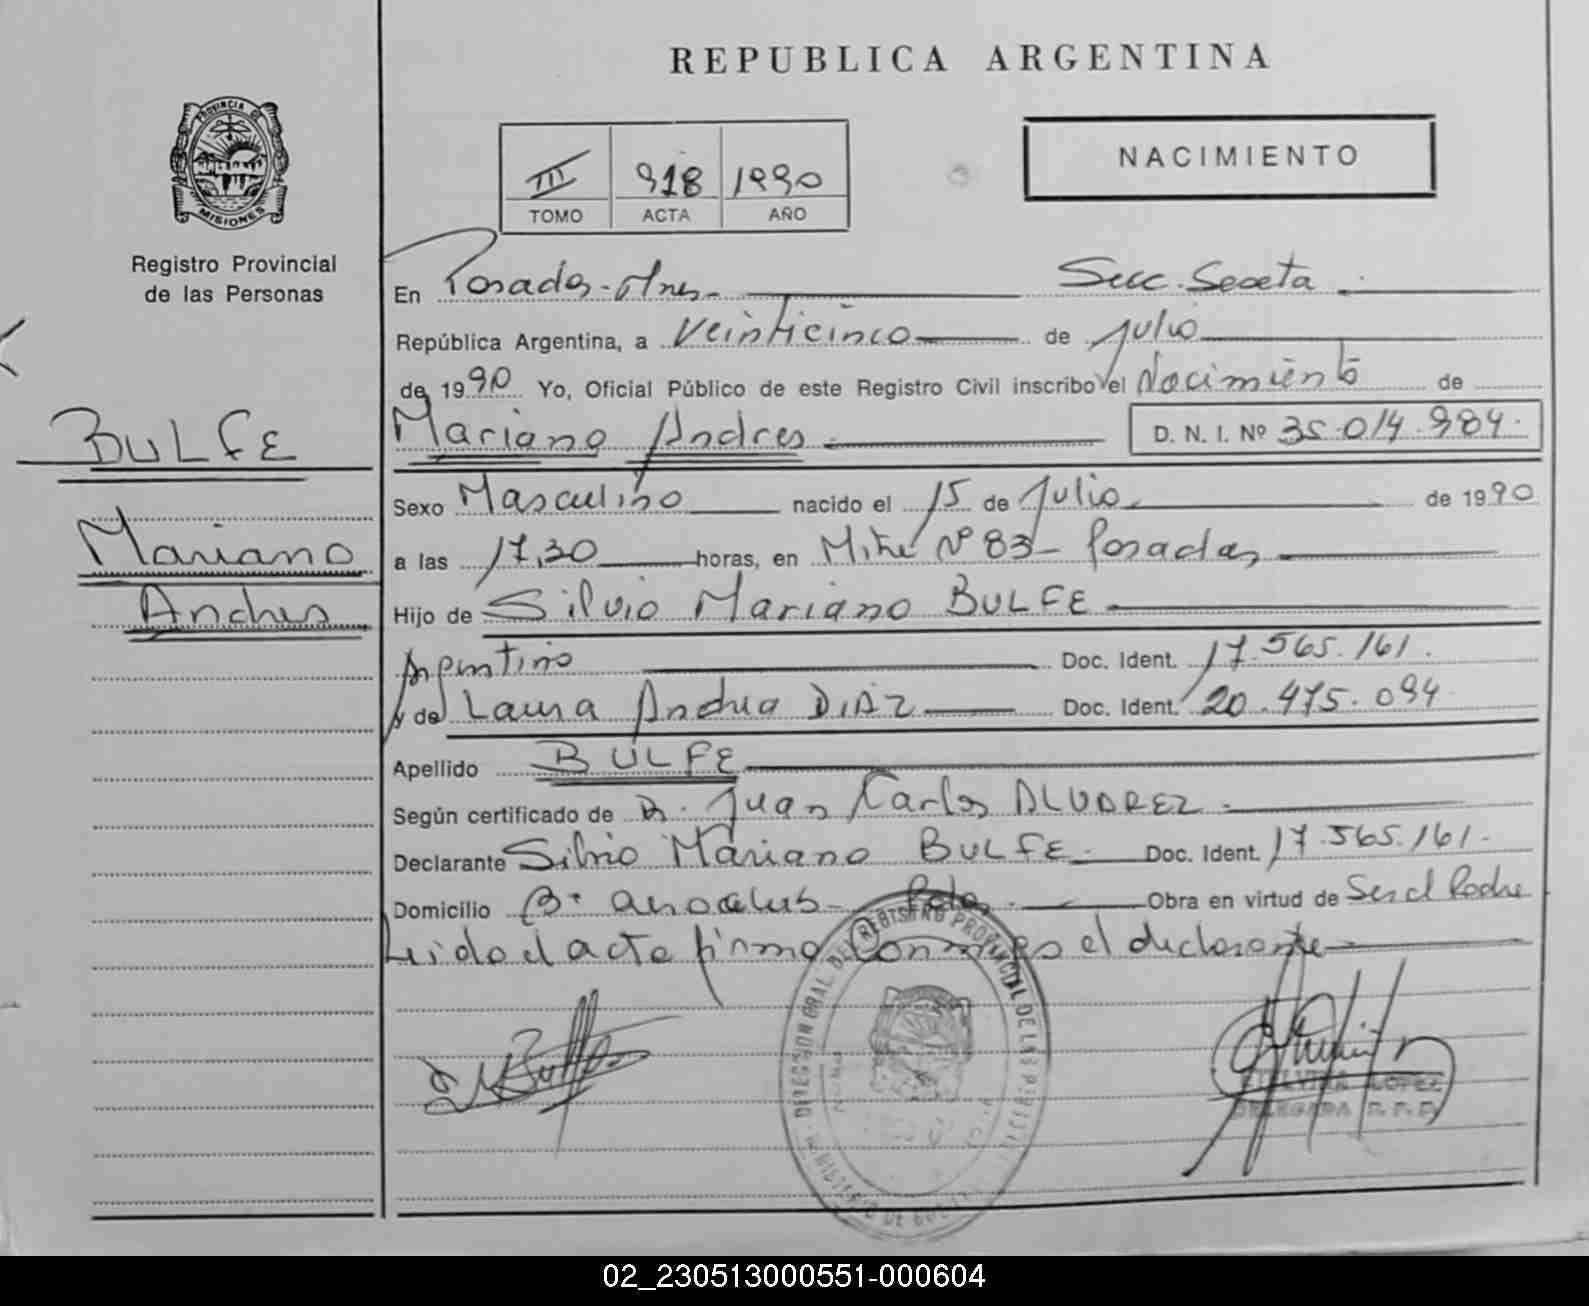 REPUBLICA ARGENTINA
PROVINCIA DE
MISIONES
Registro Provincial
de las Personas
III 918 1990
TOMO ACTA AÑO
NACIMIENTO
En Posadas - Mnes - Secc. Sexta
República Argentina, a Veinticinco de Julio
de 1990 Yo, Oficial Público de este Registro Civil inscribo el Nacimiento de
BULFE
Mariano Andres D. N. I. Nº 35.014.984.
Sexo Masculino nacido el 15 de Julio de 1990
Mariano
a las 17,30 horas, en Mitre Nº 83 - Posadas
Andres
Hijo de Silvio Mariano BULFE
Argentino Doc. Ident. 17.565.161.
y de Laura Andrea DIAZ Doc. Ident. 20.475.094
Apellido BULFE
Según certificado de Dr. Juan Carlos ALVAREZ.
Declarante Silvio Mariano BULFE - Doc. Ident. 17.565.161.
Domicilio Bº - Pdas. Obra en virtud de Ser el Padre
Leido el acta firma el declarante
DIRECCION GRAL. DEL REGISTRO PROVINCIAL DE LAS PERSONAS
MINISTERIO DE
LOPEZ
DELEGADA R.P.P.
02_230513000551-000604